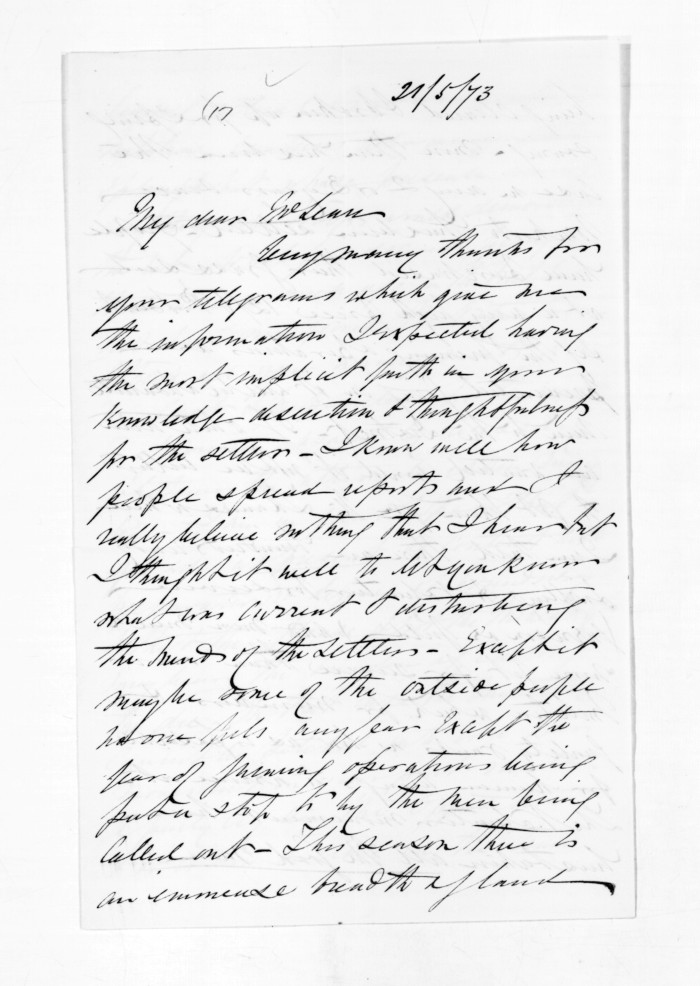 21/5/73
(17
My dear McLean
Very many thanks for
your telegrams which give me
the information I expected having
the most implicit faith in your
knowledge descretion & thoughtfulness
for the settlers - I know well how
people spread reports and I
really believe nothing that I hear but
I thought it well to let you know
what was current & disturbing
the minds of the Settlers - Except it
may be some of the outside people
no one feels any fear Except the
fear of farming operations being
put a stop to by the men being
Called out - This season there is
an immense breadth of land